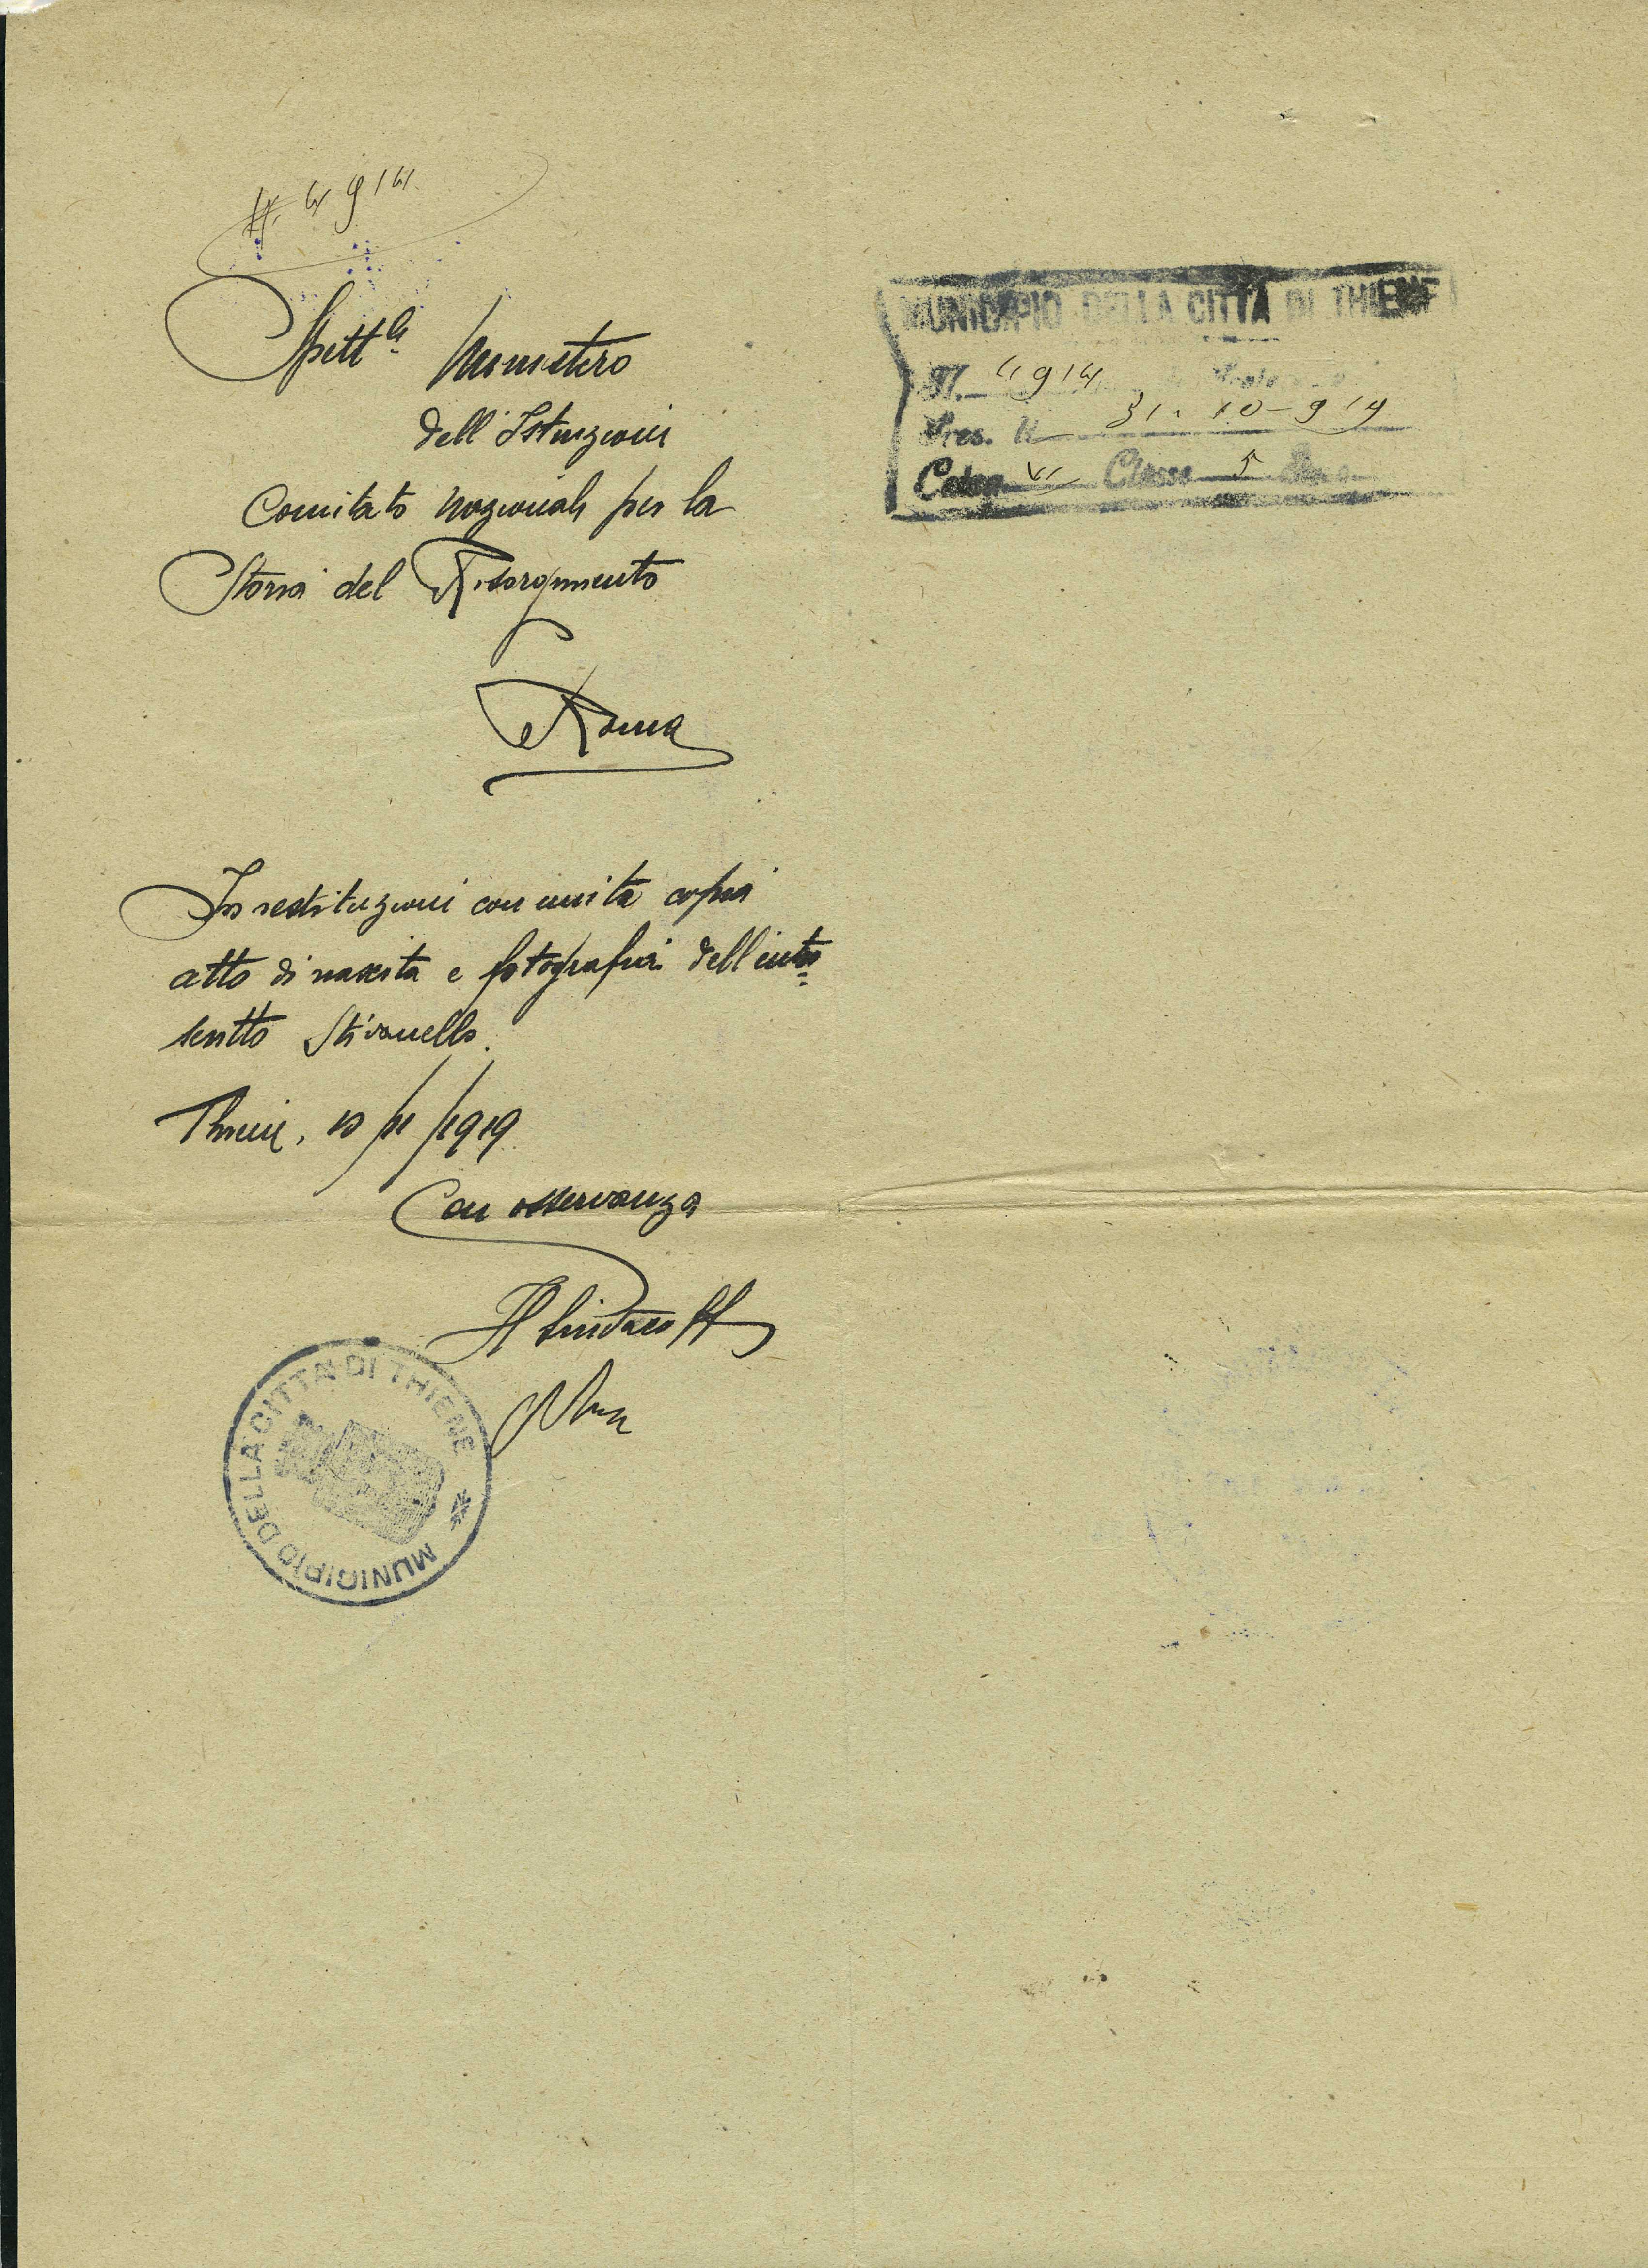 N. 4914
Spett.le Ministero
dell'Istruzione
Comitato Nazionale per la
Storia del Risorgimento
Roma
In restituzione con unita copia
atto di nascita e fotografia dell'intro=
scritto Stivanello.
Thiene, 10/11/1919
Con osservanza
Il Sindaco ff
MUNICIPIO DELLA CITTÀ DI THIENE
MUNICIPIO DELLA CITTÀ DI THIENE
N. 4914
Pres. il 31-10-919
Categ. VI Classe 5